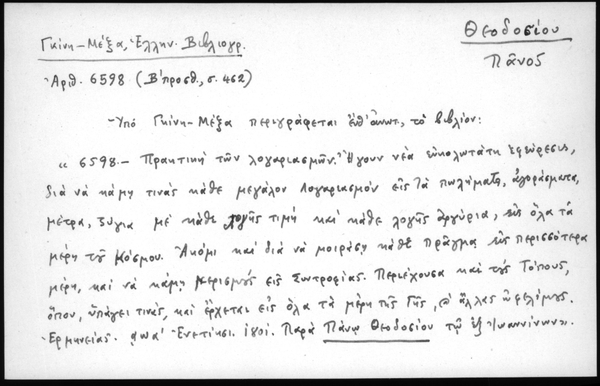 Γκίνη-Μέξα, Ἑλλην. Βιβλιογρ.
Θεοδοσίου
Πᾶνος
Ἀριθ. 6598 (Β΄προσθ., σ. 462)
Ὑπό Γκίνη-Μέξα περιγράφεται, τὸ βιβλίον:
« 6598.- Πρακτική τῶν λογαριασμῶν. Ἤγουν νέα εὐκολωτάτη ἐφεύρεσις,
διά νὰ κάμῃ τινάς κάθε μεγάλον λογαριασμόν εἰς τὰ πωλήματα, ἀγοράσματα,
μέτρα, ζύγια μὲ κάθε λογῆς τιμή καί κάθε λογῆς ἀργύρια, εἰς ὅλα τὰ
μέρη τοῦ κόσμου. Ἀκόμι καί διά νὰ μοιράσῃ κάθε πρᾶγμα εἰς περισσότερα
μέρη, καί νὰ κάμῃ μερισμούς εἰς Συντροφίας. Περιέχουσα καί τούς Τόπους,
ὅπου, ὑπάγει τινάς, καί ἔρχεται εἰς ὅλα τὰ μέρη τῆς Γῆς, ἄλλας ὠφελίμους.
Ἑρμηνείας. ᾳωα΄ Ἐνετίῃσι. 1801. Παρὰ Πάνῳ Θεοδοσίου τῷ ἐξ Ἰωαννίνων».